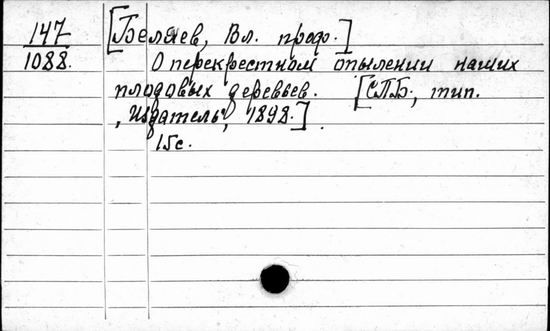 147 [Беляев, Вл. проф.]
1088. О перекрестном опылении наших
плодовых деревьев. [СПБ, тип.
"Издатель", 1898.]
15с.